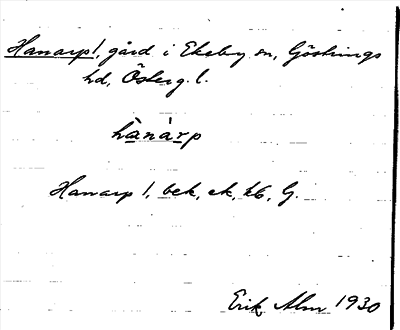 Hanarp 1, gård i Ekeby sn, Göstrings
hd, Österg. l.
hànàrp
Hanarp 1, bek, ek, kb, G.
Erik Alm 1930